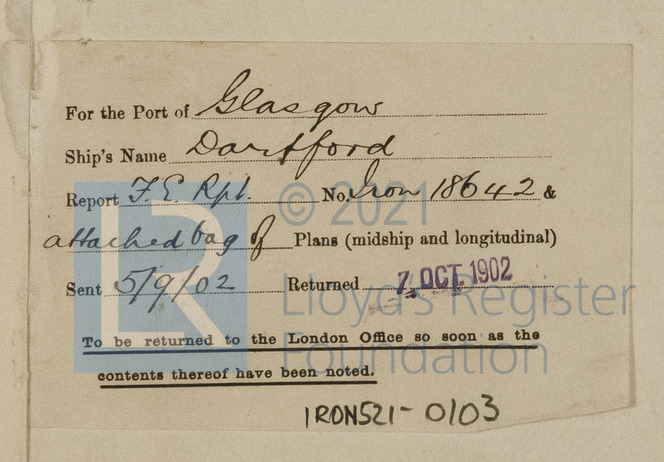 For the Port of Glasgow
Ship's Name Dartford
Report F.E. Rpt. No. Iron 18642 &
attached bag of Plans (midship and longitudinal)
Sent 5/9/02 Returned 7. OCT. 1902
To be returned to the London Office so soon as the
contents thereof have been noted.
IRON521-0103
LR
© 2021
Lloyd's Register
Foundation